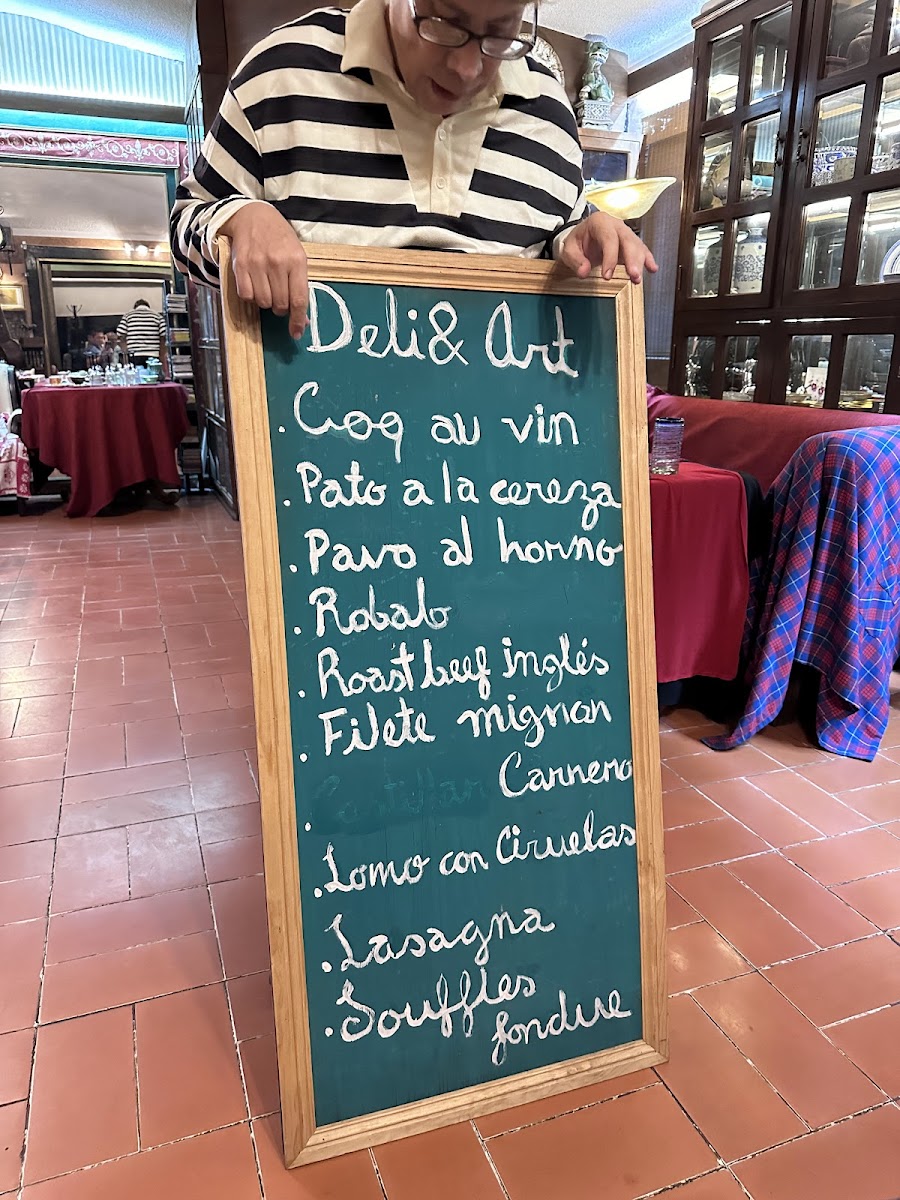 Deli & Art
. Coq au vin
. Pato a la cereza
. Pavo al horno
. Robalo
. Roast beef inglés
. Filete mignon
. Carnero
. Lomo con Ciruelas
. Lasagna
. Souffles
fondue